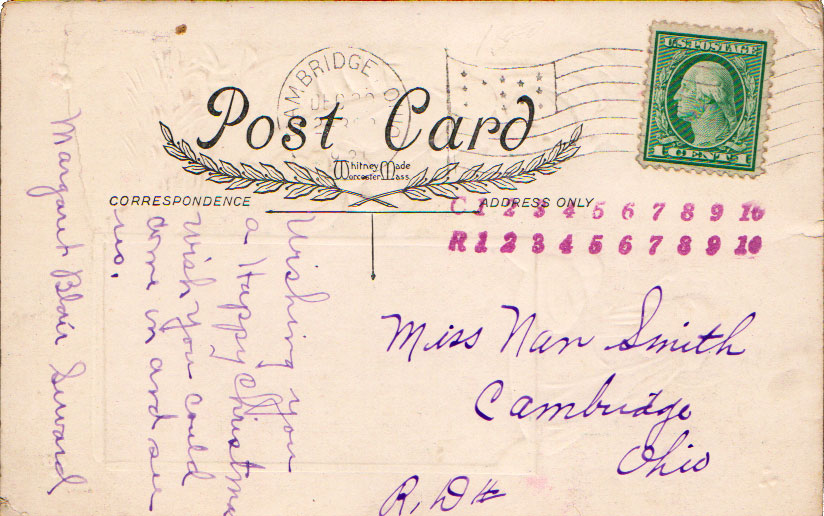 CAMBRIDGE OHIO
DEC
Post Card
Whitney Made
Worcester Mass.
U.S. POSTAGE
1 CENT 1
CORRESPONDENCE
ADDRESS ONLY
C 1 2 3 4 5 6 7 8 9 10
R 1 2 3 4 5 6 7 8 9 10
Wishing you
a Happy Christmas
Wish you could
come in and see
us.
Margaret Blair Seward
Miss Nan Smith
Cambridge
Ohio
R, D #